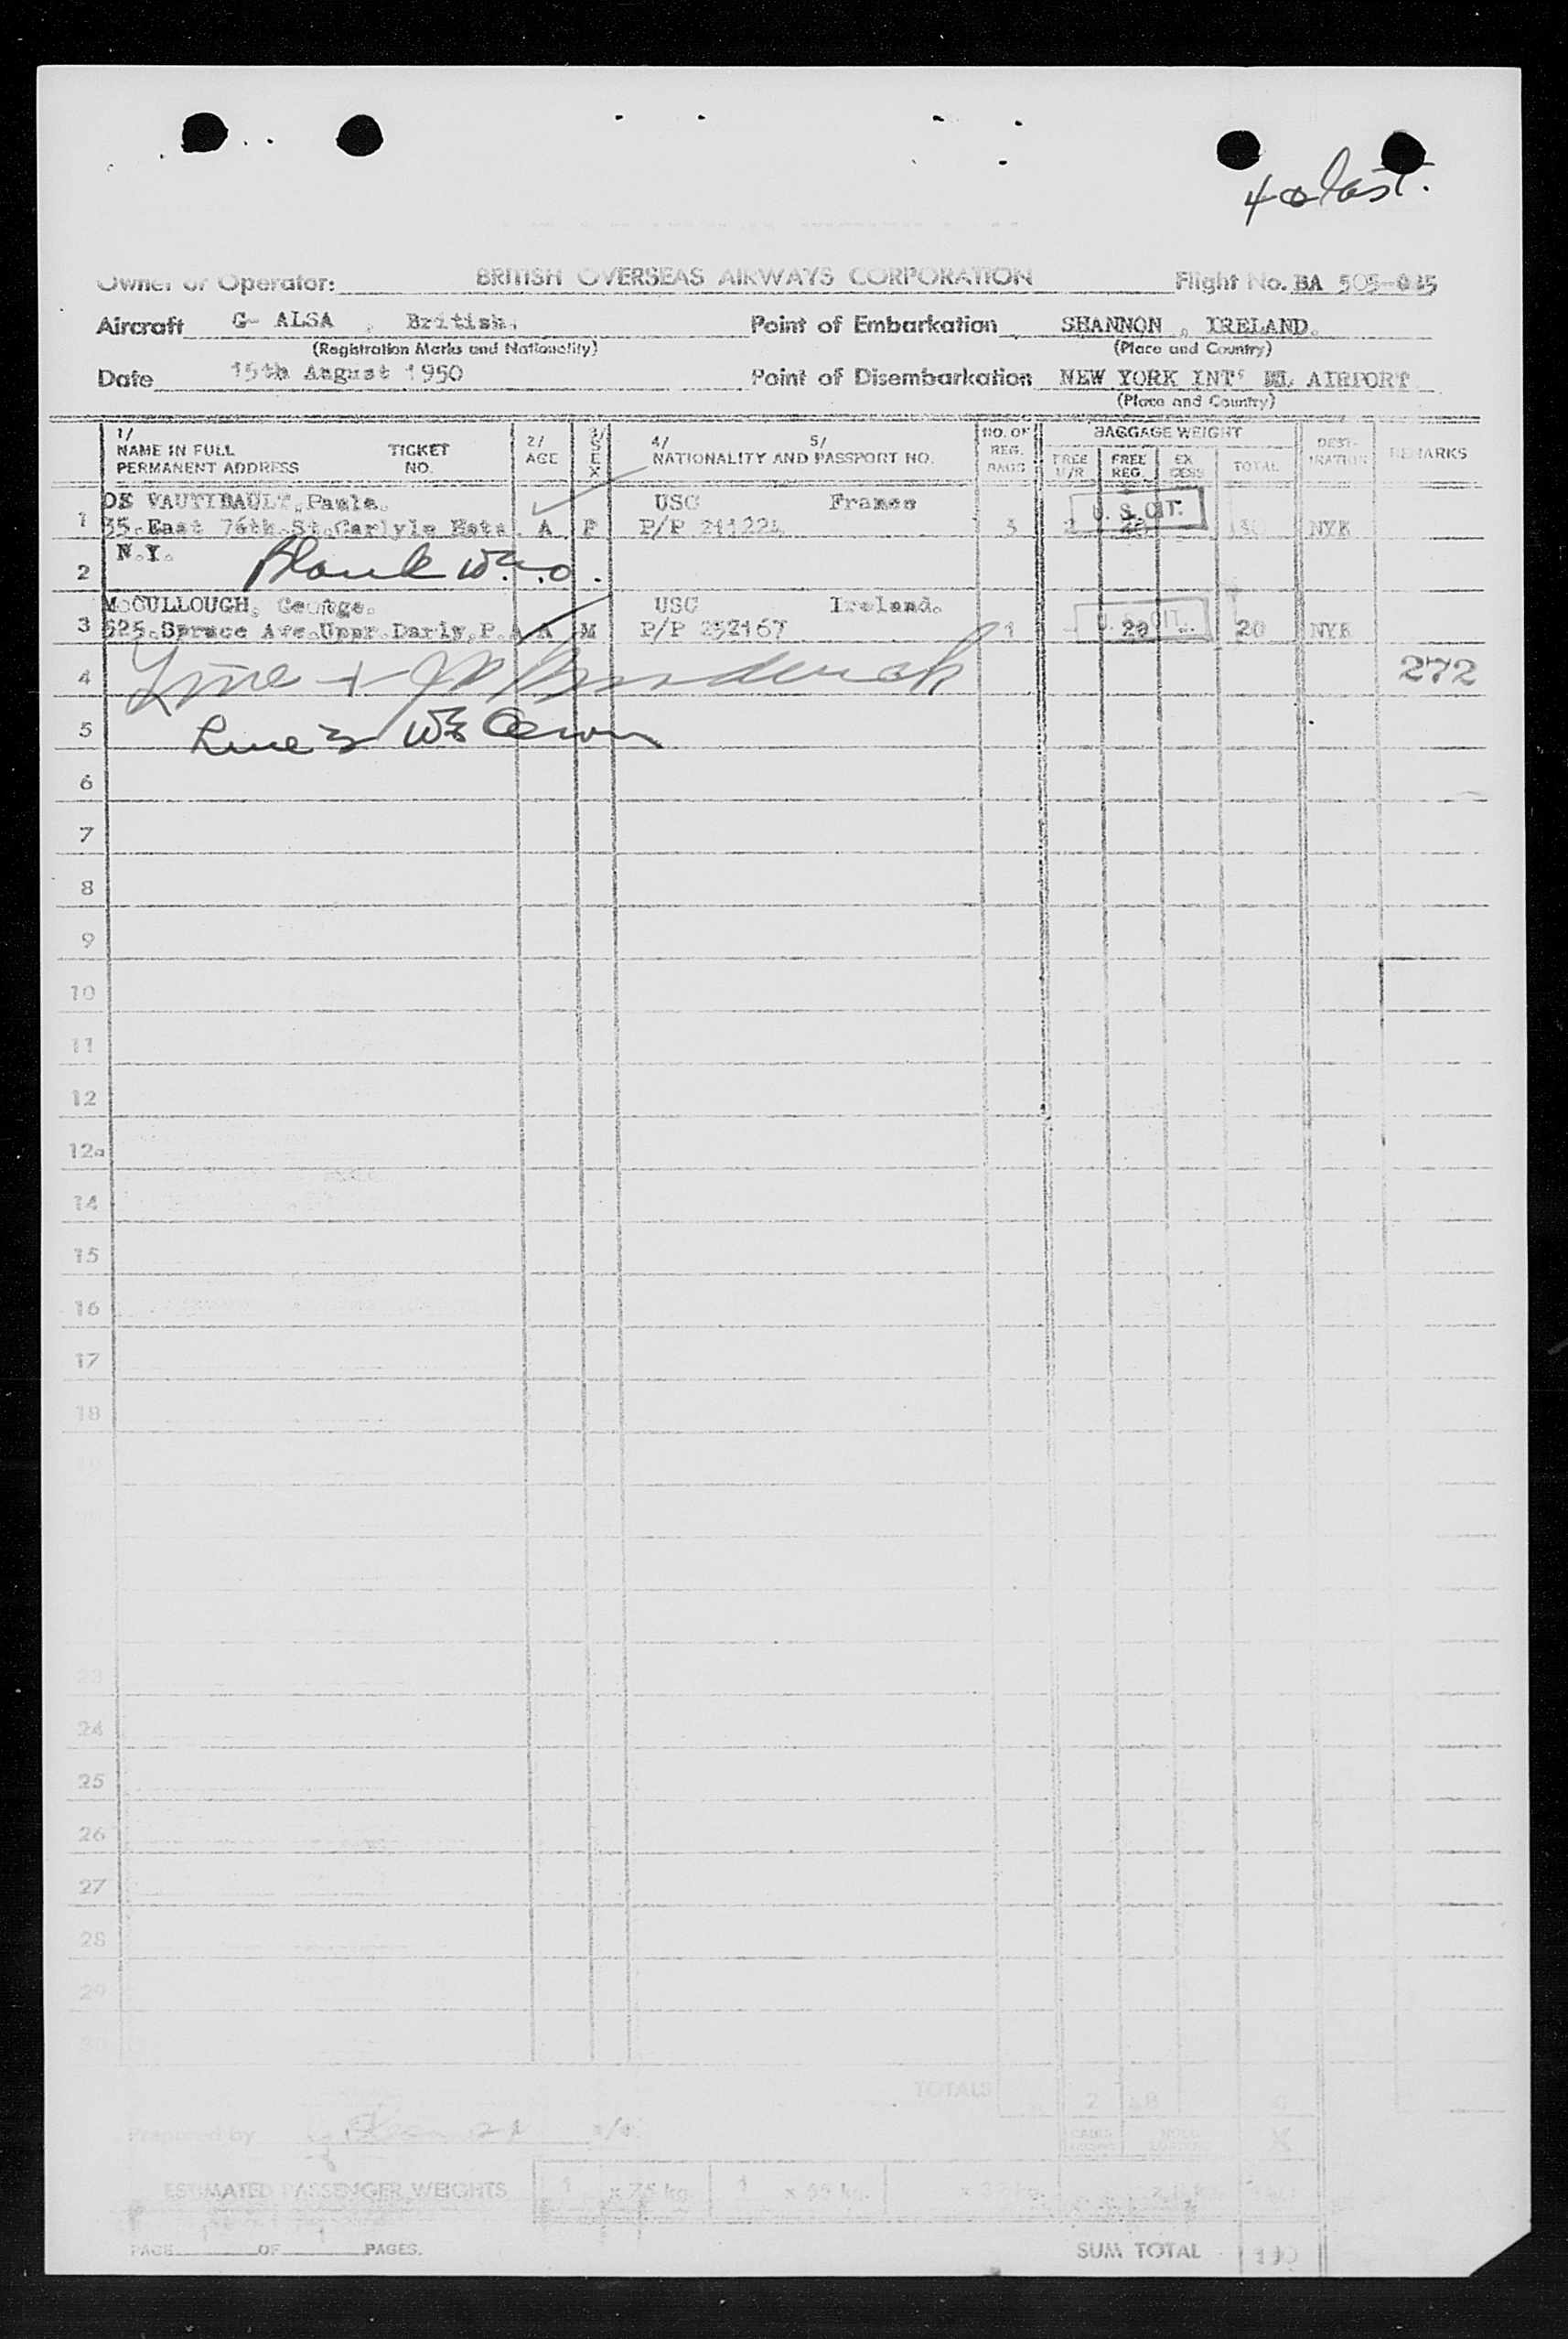 4 & last.
Owner or Operator: BRITISH OVERSEAS AIRWAYS CORPORATION Flight No. BA 505-
Aircraft G- ALSA , British. Point of Embarkation SHANNON , IRELAND.
(Registration Marks and Nationality) (Place and Country)
Date 15th August 1950 Point of Disembarkation NEW YORK INT' AIRPORT
(Place and Country)
1/ NAME IN FULL PERMANENT ADDRESS TICKET NO. 2/ AGE 3/ SEX 4/ 5/ NATIONALITY AND PASSPORT NO. NO. OF REG. BAGS BAGGAGE WEIGHT FREE U/R FREE REG. EX CESS TOTAL DESTI- NATION REMARKS
DE VAUTIBAULT, Paule. USC France U. S. CIT.
1 35.East 76th.St.Carlyle Hote. A F P/P 211224 3 2 28 30 NYK
N.Y.
2 Blank
McCULLOUGH, George. USC Ireland. U. S. CIT.
3 525.Spruce Ave.Uppr.Darly.P.A A M P/P 252167 1 - 20 - 20 NYK
4 Line 272
5 Line 3
6
7
8
9
10
11
12
12a
14
15
16
17
18
23
24
25
26
27
28
29
30
TOTALS 2 48
Prepared by
ESTIMATED PASSENGER WEIGHTS 1 x 75 kg. 1 x 65 kg.
PAGE OF PAGES. SUM TOTAL 190